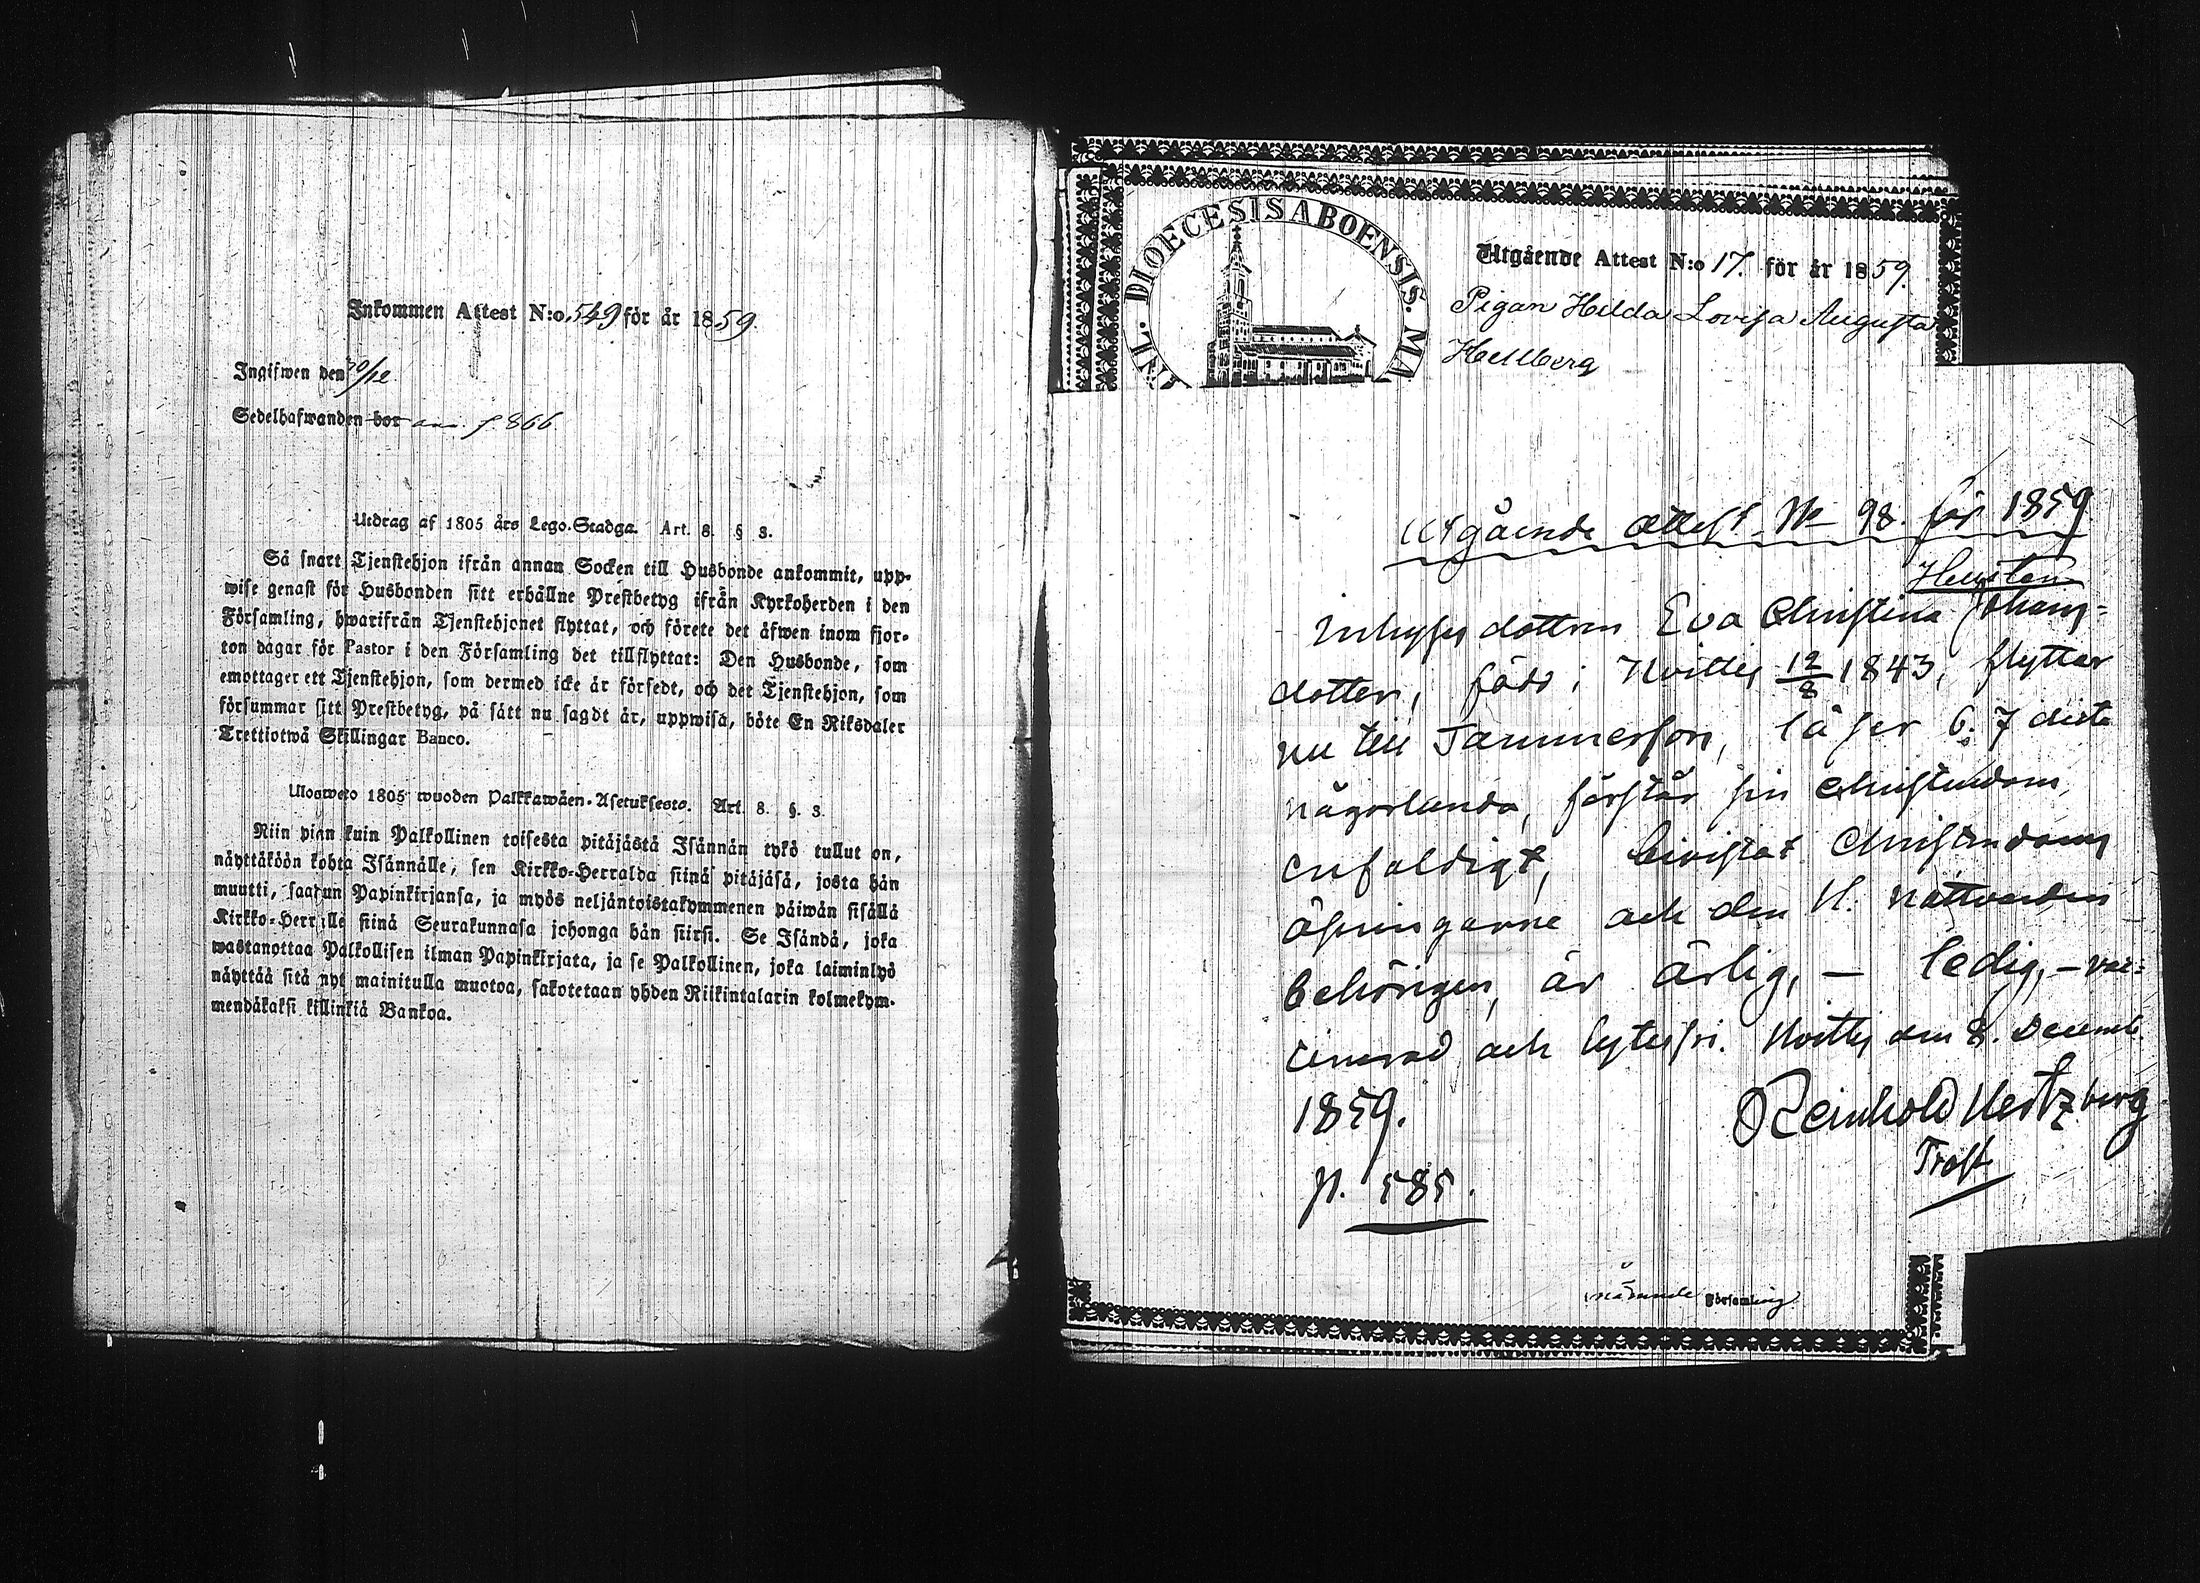 Inkommen Attest N:o 549 för år 1859.
Ingifwen den 30/12
Sedelhafwanden bor p 866
Utdrag af 1805 års Lego-Stadga. Art. 8. § 3.
Så snart Tjenstehjon ifrån annan Socken till Husbonde ankommit, upp-
wise genast för Husbonden sitt erhållne Prestbetyg ifrån Kyrkoherden i den
Församling, hwarifrån Tjenstehjonet flyttat, och förete det äfwen inom fjor-
ton dagar för Pastor i den Församling det tillflyttat: Den Husbonde, som
emottager ett Tjenstehjon, som dermed icke är försedt, och det Tjenstehjon, som
försummar sitt Prestbetyg, på sätt nu sagdt är, uppwisa, böte En Riksdaler
Trettiotwå Skillingar Banco.
Ulosweto 1805 wuoden Palkkawäen-Asetuksesta. Art. 8. §. 3.
Niin pian kuin Palkollinen toisesta pitäjästä Isännän tykö tullut on,
näyttäköön kohta Isännälle, sen Kirkko-Herralda siinä pitäjäsä, josta hän
muutti, saadun Papinkirjansa, ja myös neljäntoistakymmenen päiwän sisällä
Kirkko-Herralle siinä Seurakunnasa johonga hän siirsi. Se Isändä, joka
wastanottaa Palkollisen ilman Papinkirjata, ja se Palkollinen, joka laiminlyö
näyttää sitä nyt mainitulla muotoa, sakotetaan yhden Riikintalarin kolmekym-
mendäkaksi killinkiä Bankoa.
NL. DIOECESIS ABOENSIS. MA
Utgående Attest N:o 17. för år 1859.
Pigan Hilda Lovisa Augusta
Hellberg
Utgående attest No 98. för 1859
Hellsten
Inhyses dottren Eva Christina Johans-
dotter, född i Hvittis 12/8 1843, flyttar
nu till Tammerfors, läser 6. 7 dito
någorlunda, förstår sin Christendom
enfaldigt, bivistat Christendoms
öfningarne och den H. Nattvarden
behörigen, är ärlig, – ledig, – vac-
cinerad och lytesfri. Hvittis den 8. Decemb.
1859.
Reinhold Hertzberg
Prost
p. 585.
närande Församling